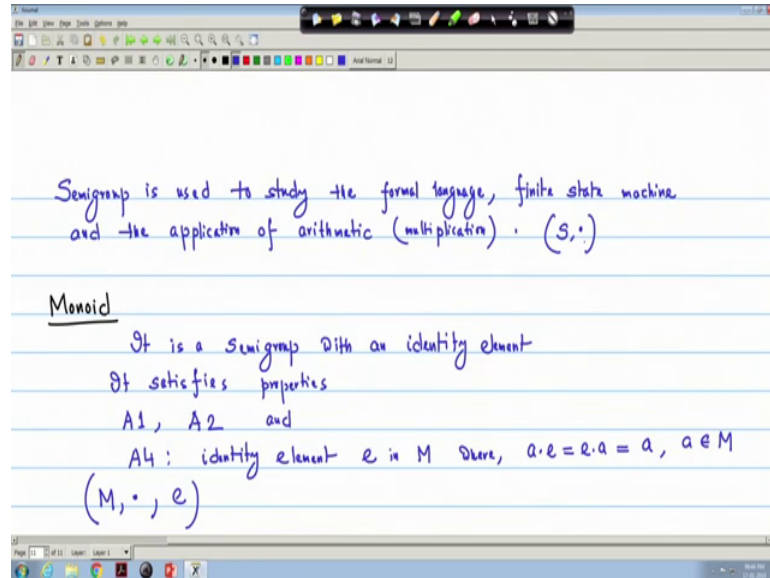 Journal
File Edit View Page Tools Options Help
Arial Normal 12
Semigroup is used to study the formal language, finite state machine
and the application of arithmetic (multiplication). (S,·)
Monoid
It is a semigroup with an identity element
It satisfies properties
A1, A2 and
A4: identity element e in M where, a·e = e·a = a, a ∈ M
(M, ·, e)
Page 11 of 11 Layer: Layer 1